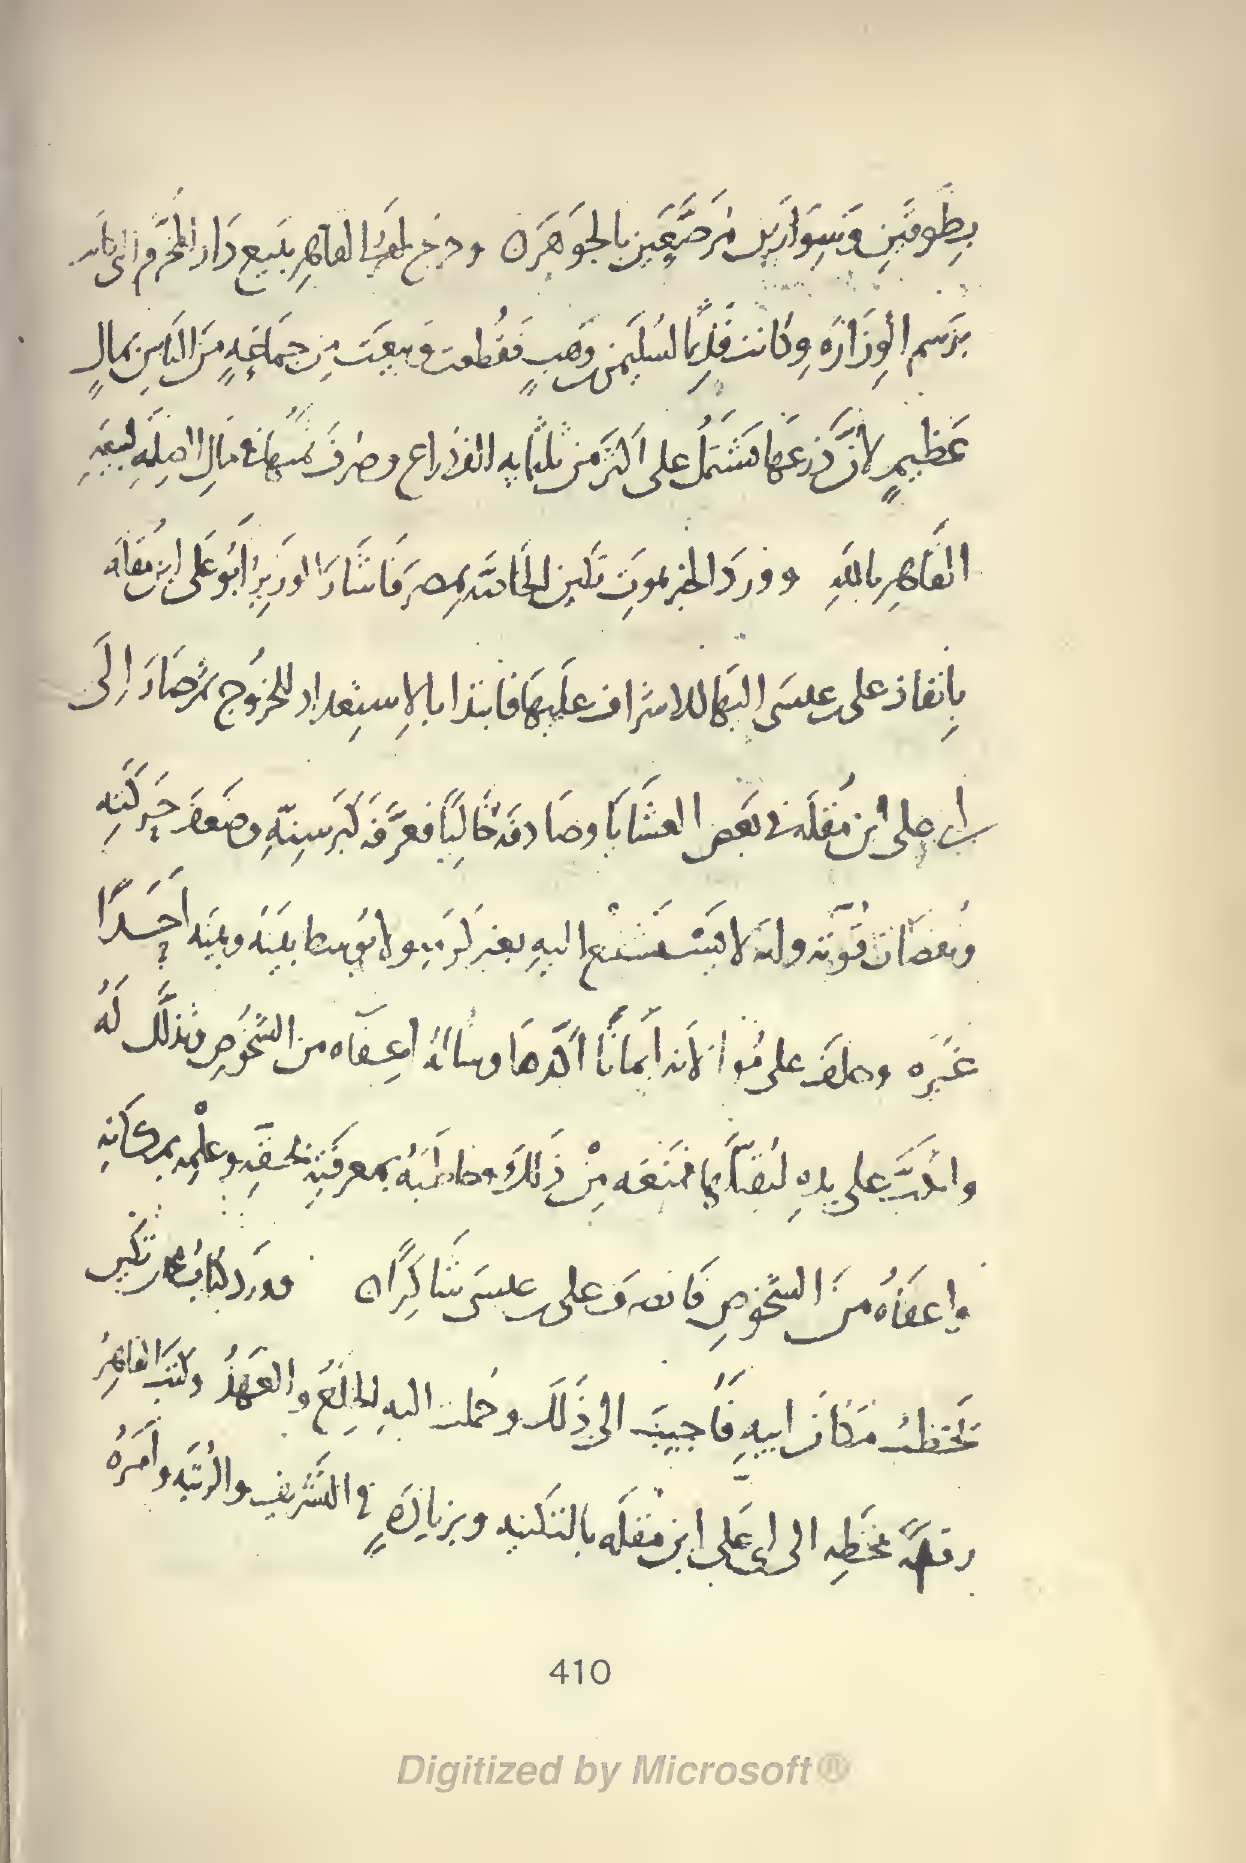 بِطَوقَينِ وَسِوَارَين مُرَصَّعَين بالجَوهَر ۞ وخرج القاهر ببَيع دَار المُخَرَّم التى كانت
بَرسم الوِزَارَه وكانت قَديمًا لسُليمَن بن وَهبٍ فقُطعت وبيعَت مِن جمَاعَهٍ مِنَ الناسِ بمالٍ
عَظيمٍ لأنَّ ذَرعَها يَشتمل على اكثر من ثلثمايه الف ذراع وصُرفَ ثمنها فى مَال الصِلَهِ لبيعَهِ
القَاهِر باللهِ ووردَ الخبر بموتِ تكين الخاصَّه بمصرَ فاشَارَ الوَزيرُ ابُو عَلى ابن مُقلَه
بِانفاذ على بن عيسَى اليهَا للاشراف عليهَا فابتدا بالاِستِعداد للخرُوج ثم صَارَ اِلَى
ابى على ابن مُقلَه فى بَعض العشَايَا وصَادفهُ خَاليًا فعرَّفه كبَر سِنّهِ وضَعفَ حَركَتهِ
ونُقصَان قُوَّته وانه لا يَستَشفع اليهِ بغير كَرَمِه ولا يُوسط بَينَهُ وبينَه اَحَدًا
غَيرَه وحلفَ على مُوالاته اَيمانًا اكدها وسالهُ اِعفَاه من الشخُوص وتذلَّل لَهُ
وانكبَّ على يدهِ ليُقبّلَها فمنَعَه مِنْ ذَلكَ وخاطَبَهُ بمعرفَتهِ بحقّهِ وعلْمِه بمكَانهِ
واعفَاهُ منَ الشخُوصِ فَانصَرفَ على بن عيسَى شَاكِرًا ۞ ووَرَد كِتَابُ محمد بن تكين
يَخطبُ مكَانَ ابيهِ فَاُجيبَ الى ذَلكَ وحُملت اليهِ الخِلَعُ والعَهدُ وكتب القاهِرُ
رقعةً بخَطِّه الى ابى عَلى ابن مُقلَه بالتكنيه وبزيادَهٍ فى التشريف والرُتبَه وامَرَهُ
410
Digitized by Microsoft®